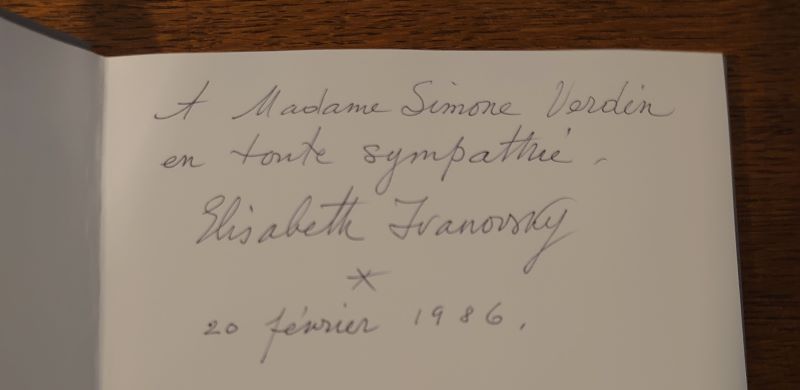 A Madame Simone Verdin
en toute sympathie.
Elisabeth Ivanovsky
*
20 février 1986.